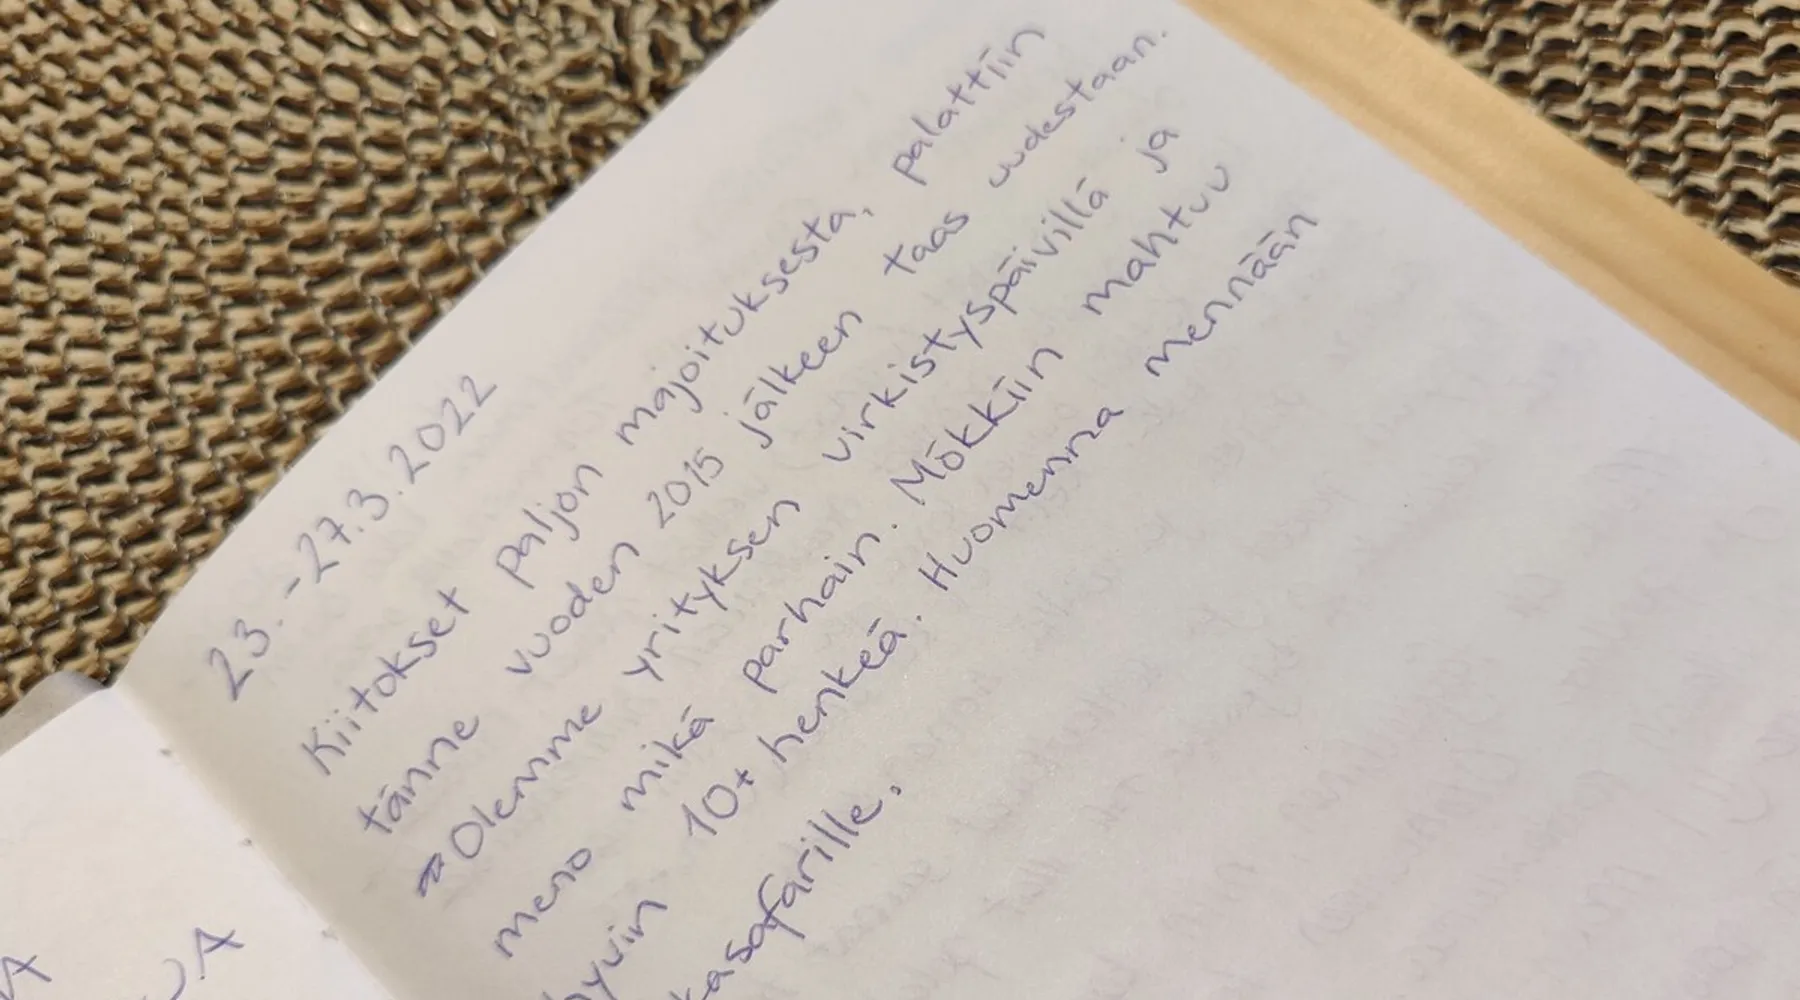 23.-27.3.2022
Kiitokset paljon majoituksesta, palattiin
tänne vuoden 2015 jälkeen taas uudestaan.
Olemme yrityksen virkistyspäivillä ja
meno mikä parhain. Mökkiin mahtuu
hyvin 10+ henkeä. Huomenna mennään